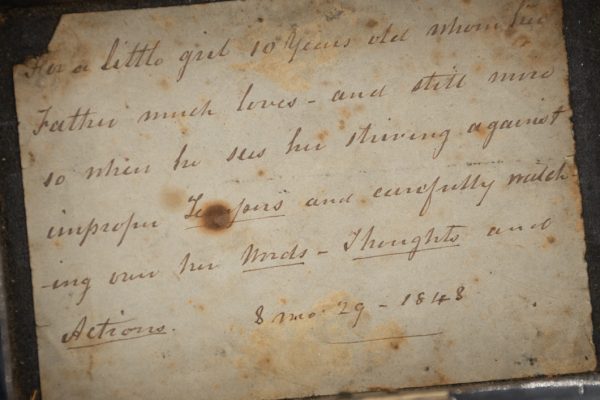 For a little girl 10 Years old whom her
Father much loves - and still more
so when he sees her striving against
improper Tempers and carefully watch
-ing over her Words - Thoughts and
Actions.
8 mo. 29 - 1848